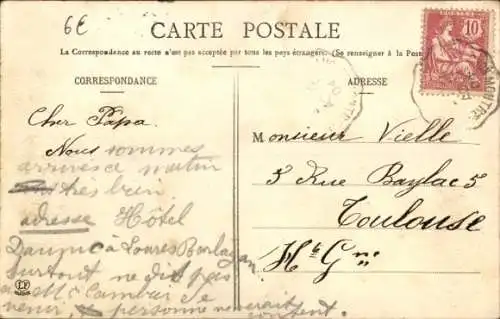 6E
CARTE POSTALE
La Correspondance au recto n'est pas acceptée par tous les pays étrangers. (Se renseigner à la Poste
CORRESPONDANCE
ADRESSE
10
Cher Papa.
Nous sommes
arrives ce matin
tres bien
adresse Hôtel
à Loures Barbazan
surtout ne dit pas
a Mr de
venir, personne
Monsieur Vielle
5 Rue Baylac 5
Toulouse
Hte Gne